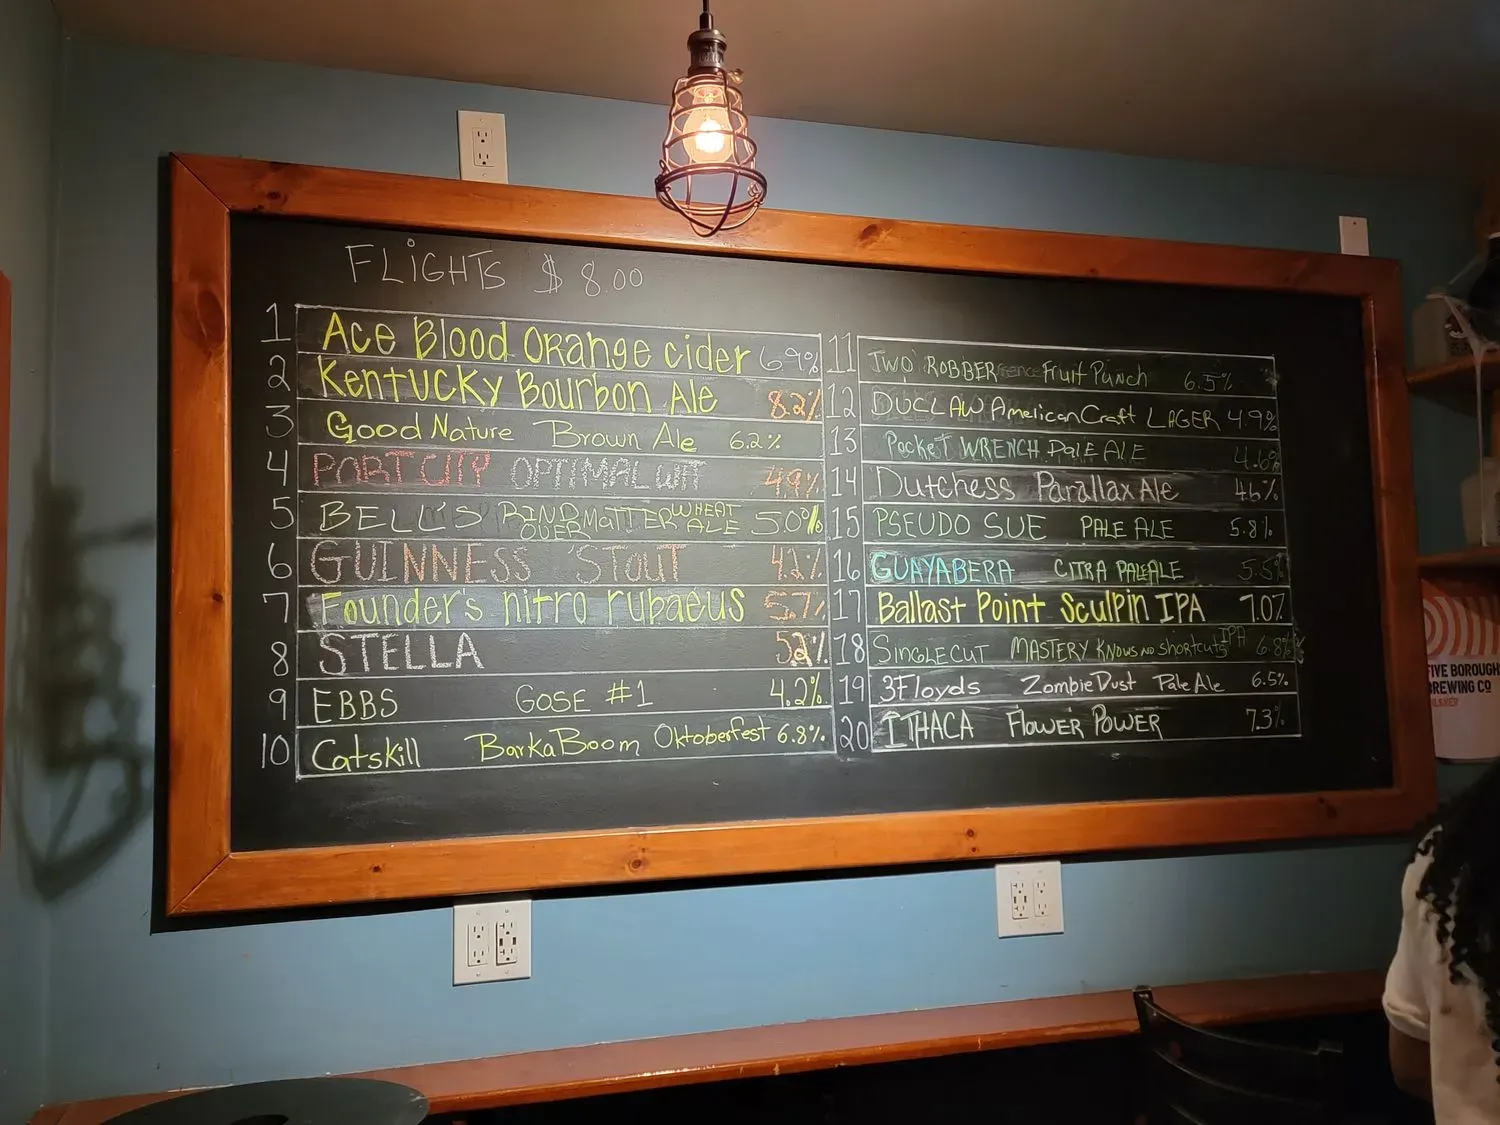 FLIGHTS $ 8.00
1 Ace Blood Orange cider 6.9%
2 Kentucky Bourbon Ale 8.2%
3 Good Nature Brown Ale 6.2%
4 PORT CITY OPTIMAL WIT 4.9%
5 BELL'S MIND OVER MATTER WHEAT ALE 5.0%
6 GUINNESS STOUT 4.2%
7 Founder's nitro rubaeus 5.7%
8 STELLA 5.2%
9 EBBS GOSE #1 4.2%
10 Catskill BarkaBoom Oktoberfest 6.8%
11 TWO ROBBER Fruit Punch 6.5%
12 DUCLAW American Craft LAGER 4.9%
13 Pocket WRENCH Pale ALE 4.6%
14 Dutchess Parallax Ale 4.6%
15 PSEUDO SUE PALE ALE 5.8%
16 GUAYABERA CITRA PALE ALE 5.5%
17 Ballast Point Sculpin IPA 7.0%
18 SINGLECUT MASTERY KNOWS NO shortcuts IPA 6.8%
19 3Floyds Zombie Dust Pale Ale 6.5%
20 ITHACA FLOWER POWER 7.3%
FIVE BOROUGH
BREWING CO
PILSNER